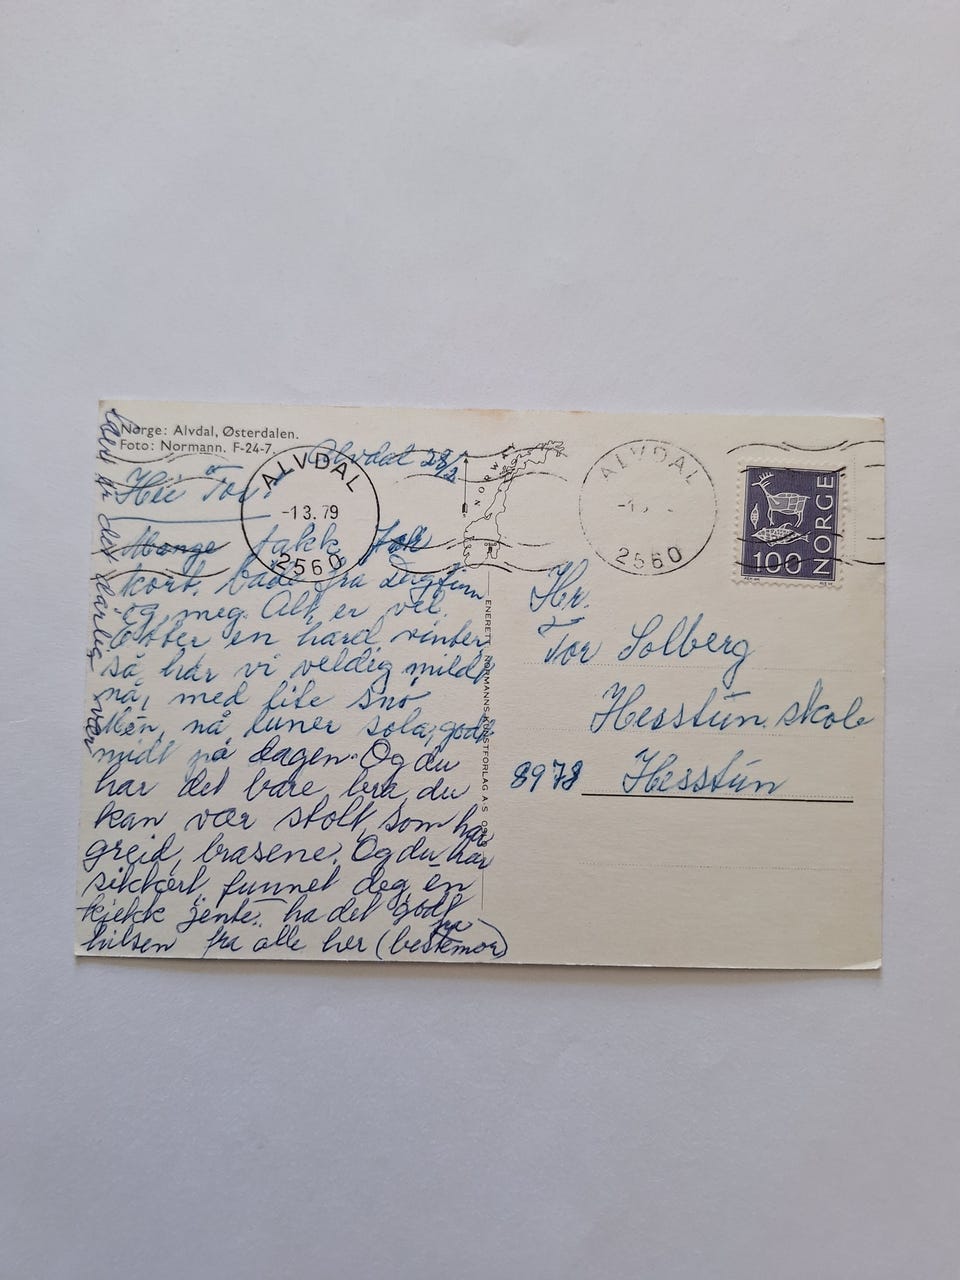 Norge: Alvdal, Østerdalen.
Foto: Normann. F-24-7.
Alvdal 28/2
Hei Tor.
Mange takk for
kort, både fra Dagfinn
og meg. Alt er vel.
Etter en hard vinter,
så har vi veldig mildt
nå, med lite snø
Men, nå luner sola, godt
midt på dagen. Og du
har det bare bra, du
kan vær stolt, som har
greid brasene. Og du har
sikkert, funnet deg en
kjekk jente. ha det godt
hilsen fra alle her (bestemor)
fra
er det dårlig vær
ALVDAL
-1 3. 79
2560
NORWAY
ENERETT NORMANNS KUNSTFORLAG A/S OSLO
ALVDAL
2560
NORGE
100
Hr.
Tor Solberg
Hesstun skole
8978 Hesstun